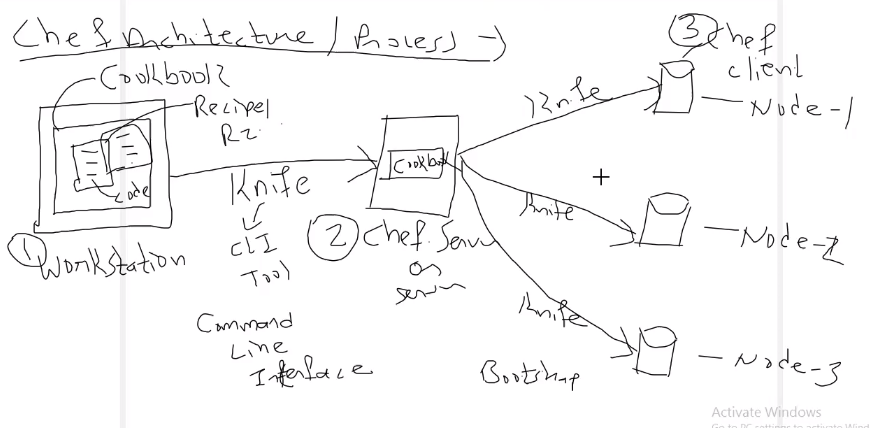 Chef Architecture / Process →
Cookbook
Recipe1
R2.
code
① Workstation
Knife
CLI
Tool
Command
Line
Interface
Cookbook
② Chef-Server
or
server
Knife
Knife
Knife
Bootstrap
③ Chef
client
Node-1
Node-2
Node-3
Activate Windows
Go to PC settings to activate Wind